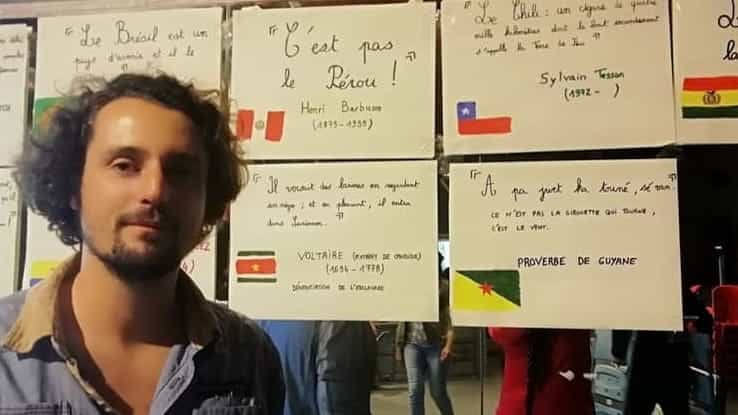 Le Brésil est un
pays d'avenir et il le
" C'est pas
le Pérou ! "
Henri Barbusse
(1873-1935)
" Le Chili : un cigare de quatre
mille kilomètres dont le bout incandescent
s'appelle la Terre de Feu "
Sylvain Tesson
(1972- )
" Il versait des larmes en regardant
son nègre ; et en pleurant, il entra
dans Surinam. "
VOLTAIRE (EXTRAIT DE CANDIDE)
(1694-1778)
DÉNONCIATION DE L'ESCLAVAGE
" A pa jwèt ka touné, sé van. "
CE N'EST PAS LA GIROUETTE QUI TOURNE,
C'EST LE VENT.
PROVERBE DE GUYANE